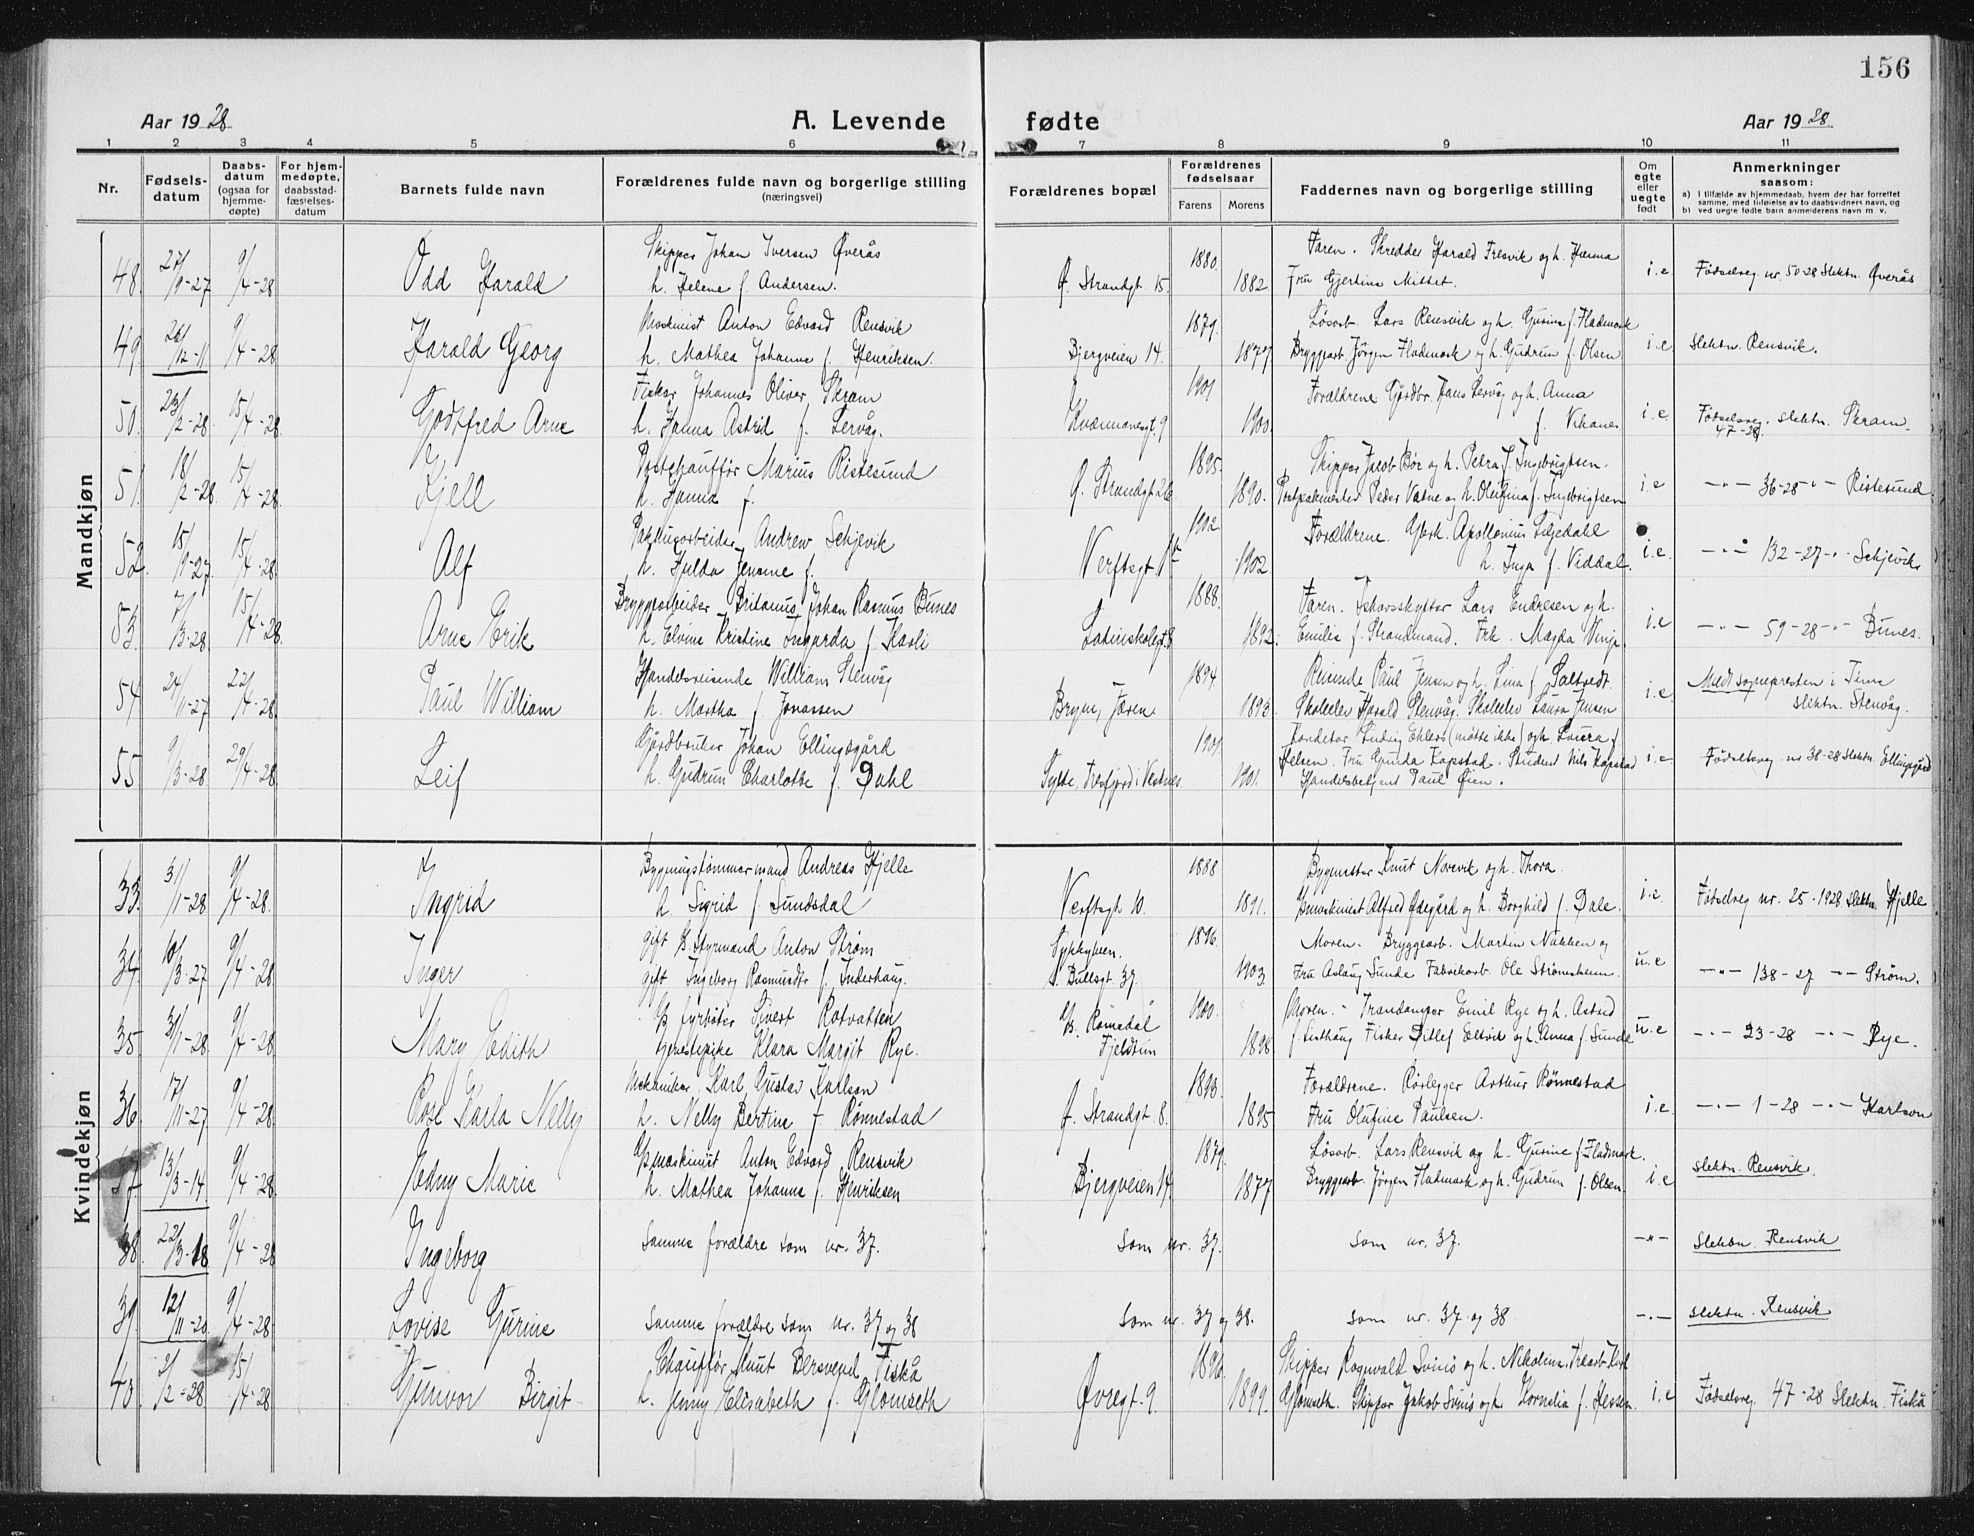 156
Aar 1928
A. Levende fødte
Aar 1928
1 2 3 4 5 6 7 8 9 10 11
Nr.
Fødsels-
datum
Daabs-
datum
(ogsaa for
hjemme-
døpte)
For hjem-
medøpte,
daabsstad-
fæstelses-
datum
Barnets fulde navn
Forældrenes fulde navn og borgerlige stilling
(næringsvei)
Forældrenes bopæl
Forældrenes
fødselsaar
Farens
Morens
Faddernes navn og borgerlige stilling
Om
egte
eller
uegte
født
Anmerkninger
saasom:
a) I tilfælde av hjemmedaab, hvem der har forrettet
samme, med tilføielse av to daabsvidners navn, og
b) ved uegte fødte barn anmelderens navn m. v.
Mandkjøn
48. 27/9-27 9/4-28 Odd Harald
Skipper Johan Iversen Øverås
h. Helene f. Andersen.
Ø. Strandgt 15. 1880. 1882
Faren. Skredder Harald Fresvik og h. Hanna
Fru Gjertine Mittet.
i.e Fødselreg nr. 50-28 Slektn. Øverås
49 26/12-11 9/4-28 Harald Georg
Maskinist Anton Edvard Rensvik
h. Mathea Johanne f. Henriksen.
Bjergveien 14. 1879. 1877
Løsarb. Lars Rensvik og h. Gurine f. Fladmark
Bryggearb. Jørgen Fladmark og h. Gudrun f. Olsen
i.e. Slektn. Rensvik.
50. 23/2-28 15/4-28 Godtfred Arne
Fisker Johannes Oliver Skram
h. Hanna Astrid f. Lervåg.
9 1901 1900.
Forældrene Gårdbr. Hans Lervåg og h. Anna
f. Vikanes
i.e. Fødselsreg. Slektn. Skram.
47-28.
51. 18/2-28 15/4-28 Kjell
Postchauffør Marius Ristesund
h. Hanna f.
Ø. Strandgt 26 1895. 1890.
Skipper Jacob Bøe og h. Petra f. Ingebrigtsen.
Postpakmester Peder Vatne og h. Olufina f. Ingebrigtsen
i.e -"- 36-28 -"- Ristesund
52. 15/9-27 15/4-28. Alf
Pakhusarbeider Andrew Schjevik
h. Hulda Jensine f.
Verftsgt. 1 1902 1902.
Forældrene. Apollonius Liljedahl
h. Inga f. Viddal.
i.e. -"- 132-27 -"- Schjevik
53. 7/3-28 15/4-28 Arne Erik
Bryggearbeider Britanus Johan Rasmus Bunes
h. Elvine Kristine Ingarda f. Hasli
Latinskolegt. 8 1888. 1892.
Faren. Lars Endresen og h.
Emilie f. Strandmand. Frk. Magda Vinje
i.e -"- 59-28 -"- Bunes.
54. 24/11-27 22/4-28. Paul William
Handelsreisende William Stenvåg
h. Martha f. Jonassen
Bryne, Jæren 1894. 1893.
Reisende Paul Jensen og h. Lina f. Saltvedt.
Skoleelev Harald Stenvåg. Skoleelev Laura Jensen
i.e. Medt sogneprest en i Time
Slektn. Stenvåg.
55. 9/3-28 29/4-28 Leif
Gårdbruker Johan Ellingsgård
h. Gudrun Charlotte f. Dahl
Sylte, Tresfjord i Vestnes 1901. 1901.
Konditor Ludvig Ehlers (møtte ikke) og h. Lovera f.
Helsen. Fru Gunda Kopstad. Student Nils Kopstad
Handelsbetjent Paul Øien.
i.e. Fødselsreg nr 38-28 Slektn. Ellingsgård
Kvindekjøn
33. 31/1-28 9/4-28. Ingrid
Bygningstømmermand Andreas Hjelle
h. Sigrid f. Sundsdal
Verftsgt 10. 1888 1891.
Bygmester Knut Norvik og h. Thora.
Maskinist Alfred Ødegård og h. Borghild f. Dale.
i.e. Fødselreg nr. 25-1928 Slektn. Hjelle
34. 10/3-27 9/4-28 Inger
gift Styrmand Anton Strøm
gift Ingeborg Rasmussdtr f. Inderhaug.
Sykkylven.
O. Bullsgt. 37. 1896. 1903.
Moren. Bryggearb. Martin Nakken og
Fru Aslaug Sunde Fabrikarb. Ole Strømsheim.
u.e -"- 138-27 -"- Strøm.
35. 31/1-28 9/4-28. Mary Edith
fyrbøter Sivert Rotvatten
tjenestepike Klara Margit Rye.
Romsdal
Fjeldtun 1900. 1898
Moren. Trandamper Emil Rye og h. Astrid
f. Listhaug Fisker Ditlef Eltvik og h. Anna f. Sunde
u.e -"- 23-28 -"- Rye.
36. 17/11-27 9/4-28. Rose Karla Nelly
Mekaniker Karl Gustav Karlson
h. Nelly Bertine f. Rønnestad
Ø. Strandgt. 8. 1893. 1895
Forældrene. Rørlegger Arthur Rønnestad
Fru Olufine Paulsen.
i.e. -"- 1-28 -"- Karlson
37 13/3-14 9/4-28. Hedny Marie
Maskinist Anton Edvard Rensvik
h. Mathea Johanne f. Henriksen
Bjergveien 14. 1879. 1877
Løsarb. Lars Rensvik og h. Gurine f. Fladmark.
Bryggearb. Jørgen Fladmark og h. Gudrun f. Olsen.
i.e Slektn. Rensvik.
38. 22/3-18 9/4-28 Ingeborg
Samme forældre som nr. 37.
Som nr. 37.
Som nr. 37.
-"- Slektn. Rensvik
39. 12/11-20 9/4-28 Lovise Gurine
Samme forældre som nr. 37 og 38
Som nr. 37 og 38.
Som nr. 37 og 38
-"- Slektn. Rensvik
40. 2/2-28 15/4-28 Gunvor Birgit
Chauffør Knut Bersvend Fiskå
h. Jenny Elisabeth f. Glomseth
Øvregt. 9. 1896. 1899.
Skipper Ragnvald Svinø og h. Nikoline. Træarb.
Glomseth. Skipper Jakob Svinø og h. Kornelia f. Hessen.
i.e Fødselsreg. 47-28 Slektn. Fiskå